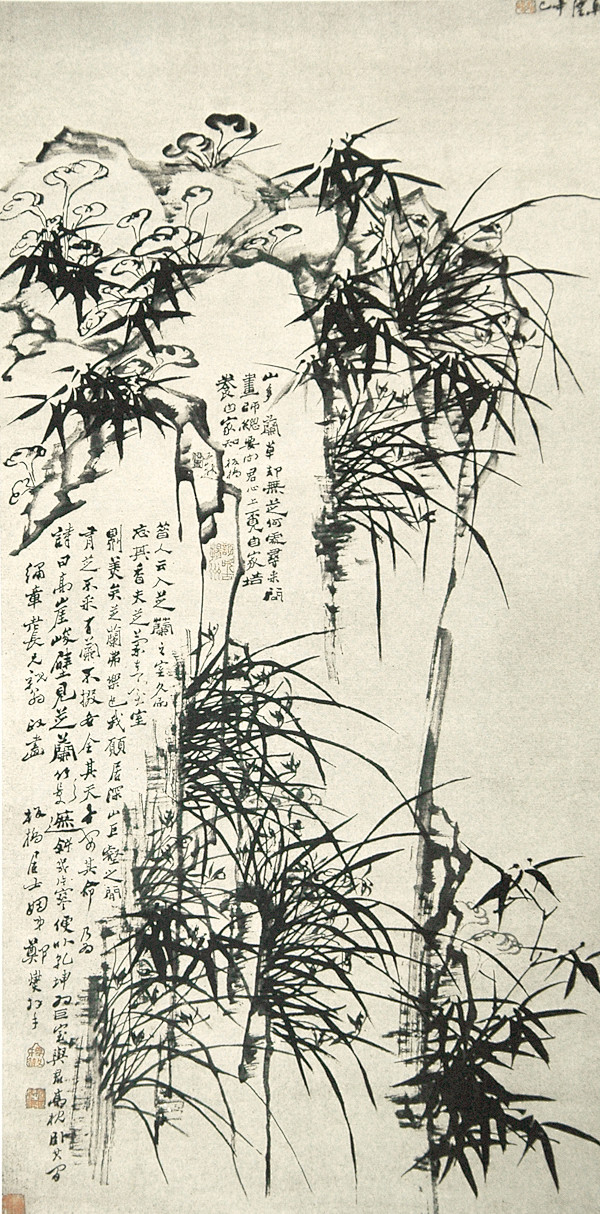 山多蘭草却無芝何處尋来問
畫師總要向君心上覓自家培
養自家知 板橋
昔人云入芝蘭之室久而
忘其香夫芝蘭 室
則美矣芝蘭弗樂也我願居深山巨壑之間
有芝不采有蘭不掇 全其天 安其命 乃為
詩曰高崖峻壁見芝蘭竹影遮斜幾片寒便以乾坤為巨室與君高枕卧其間
章 長兄親翁政畫 板橋居士姻弟鄭燮拜手